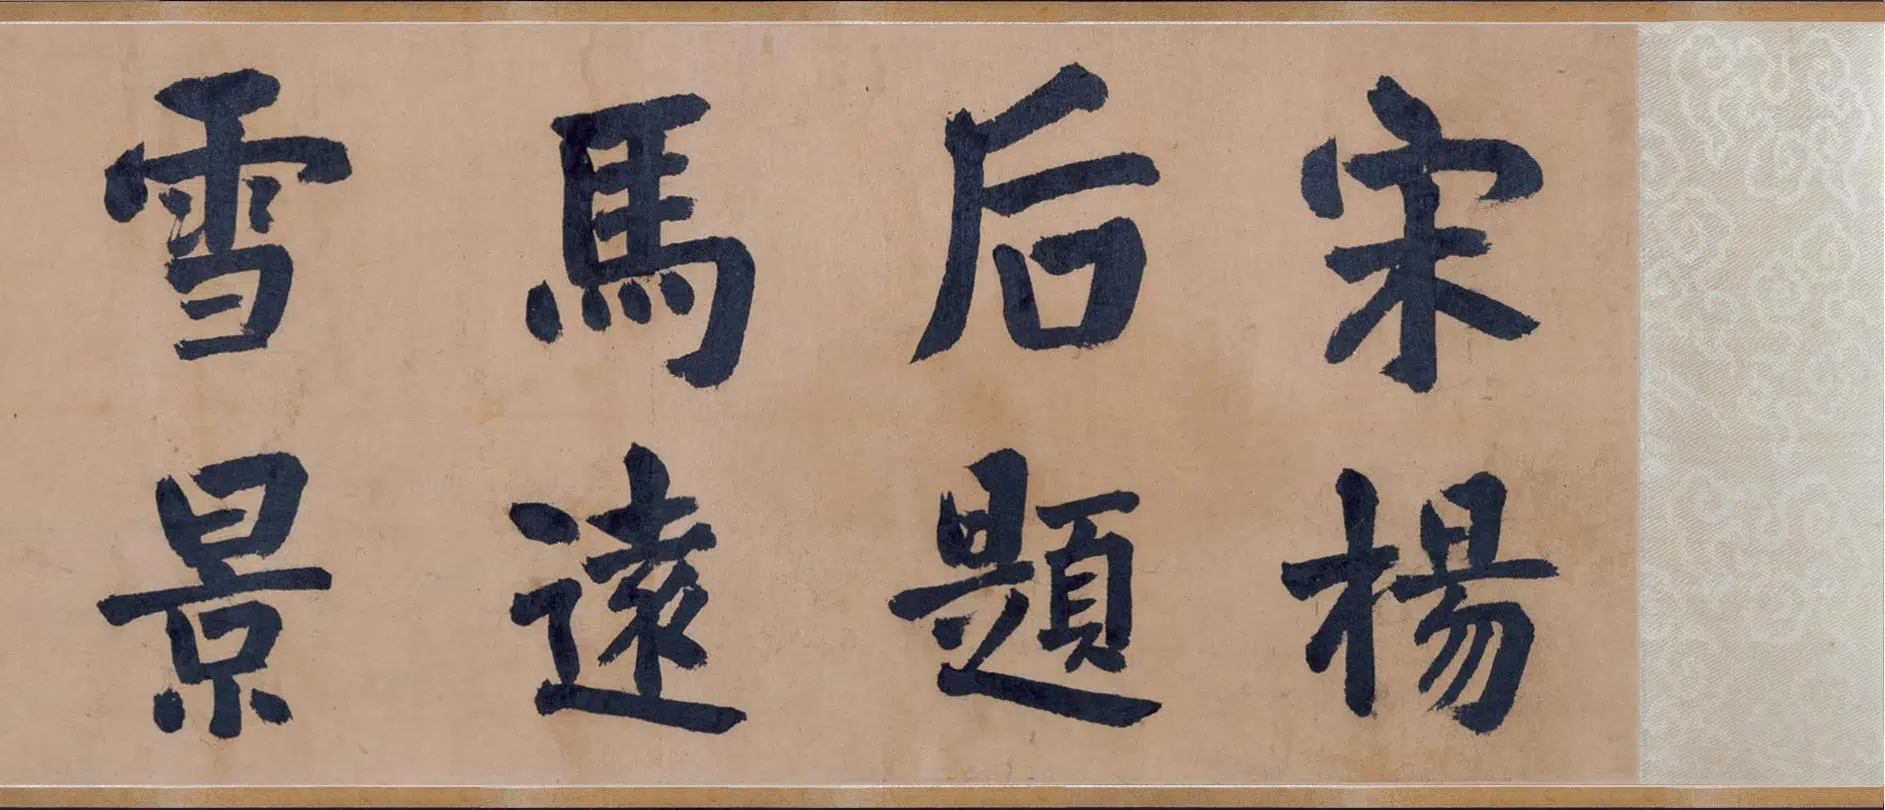 宋楊
后題
馬遠
雪景